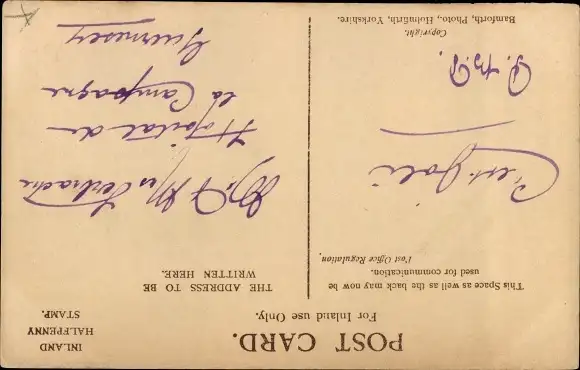 POST CARD.
For Inland use Only.
INLAND
HALFPENNY
STAMP.
This Space as well as the back may now be
used for communication.
Post Office Regulation.
THE ADDRESS TO BE
WRITTEN HERE.
C'est Joli
Hopital de
la Campagne
Guernesey
Copyright.
Bamforth, Photo, Holmfirth, Yorkshire.